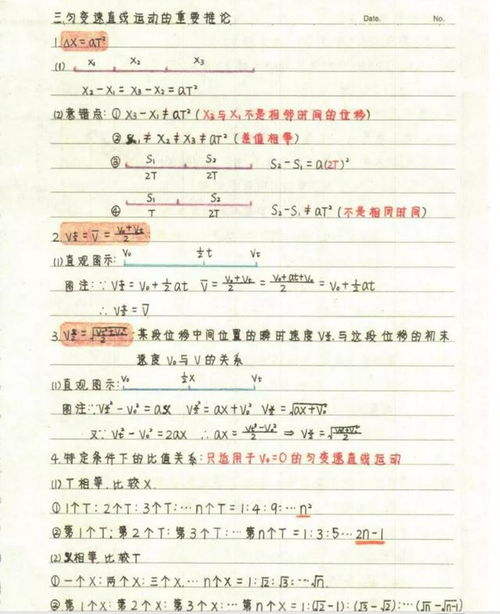 三.匀变速直线运动的重要推论 Date. No.
1.ΔX=aT²
(1) X₁ X₂ X₃
X₂-X₁=X₃-X₂=aT²
(2)易错点:①X₃-X₁≠aT²(X₃与X₁不是相邻时间的位移)
②X₁≠X₂≠X₃≠aT²(差值相等)
③ S₁ S₂ S₂-S₁=a(2T)²
2T 2T
④ S₁ S₂ S₂-S₁≠aT²(不是相同时间)
T 2T
2.V_{t/2}=V̄=(V₀+Vt)/2
(1)直观图示: V₀ ½t Vt
图注:∵V_{t/2}=V₀+½at V̄=(V₀+Vt)/2=(V₀+at+V₀)/2=V₀+½at
∴V_{t/2}=V̄
3.V_{x/2}=√((V₀²+Vt²)/2):某段位移中间位置的瞬时速度V_{x/2}与这段位移的初末
速度V₀与V的关系
(1)直观图示: V₀ ½X Vt
图注:∵V_{x/2}²-V₀²=aX V_{x/2}²=aX+V₀² V_{x/2}=√(aX+V₀²)
又∵Vt²-V₀²=2aX ∴aX=(Vt²-V₀²)/2 ⇒V_{x/2}=√((V₀²+Vt²)/2)
4.特定条件下的比值关系:只适用于V₀=0的匀变速直线运动
(1)T相等.比较X.
①1个T:2个T:3个T:…n个T=1:4:9:…n²
②第1个T:第2个T:第3个T:…第n个T=1:3:5…2n-1
(2)X相等.比较T
①一个X:两个X:三个X.…n个X=1:√2:√3:…√n.
②第1个X:第2个X:第3个X:…第n个X=1:(√2-1):(√3-√2):…(√n-√(n-1))